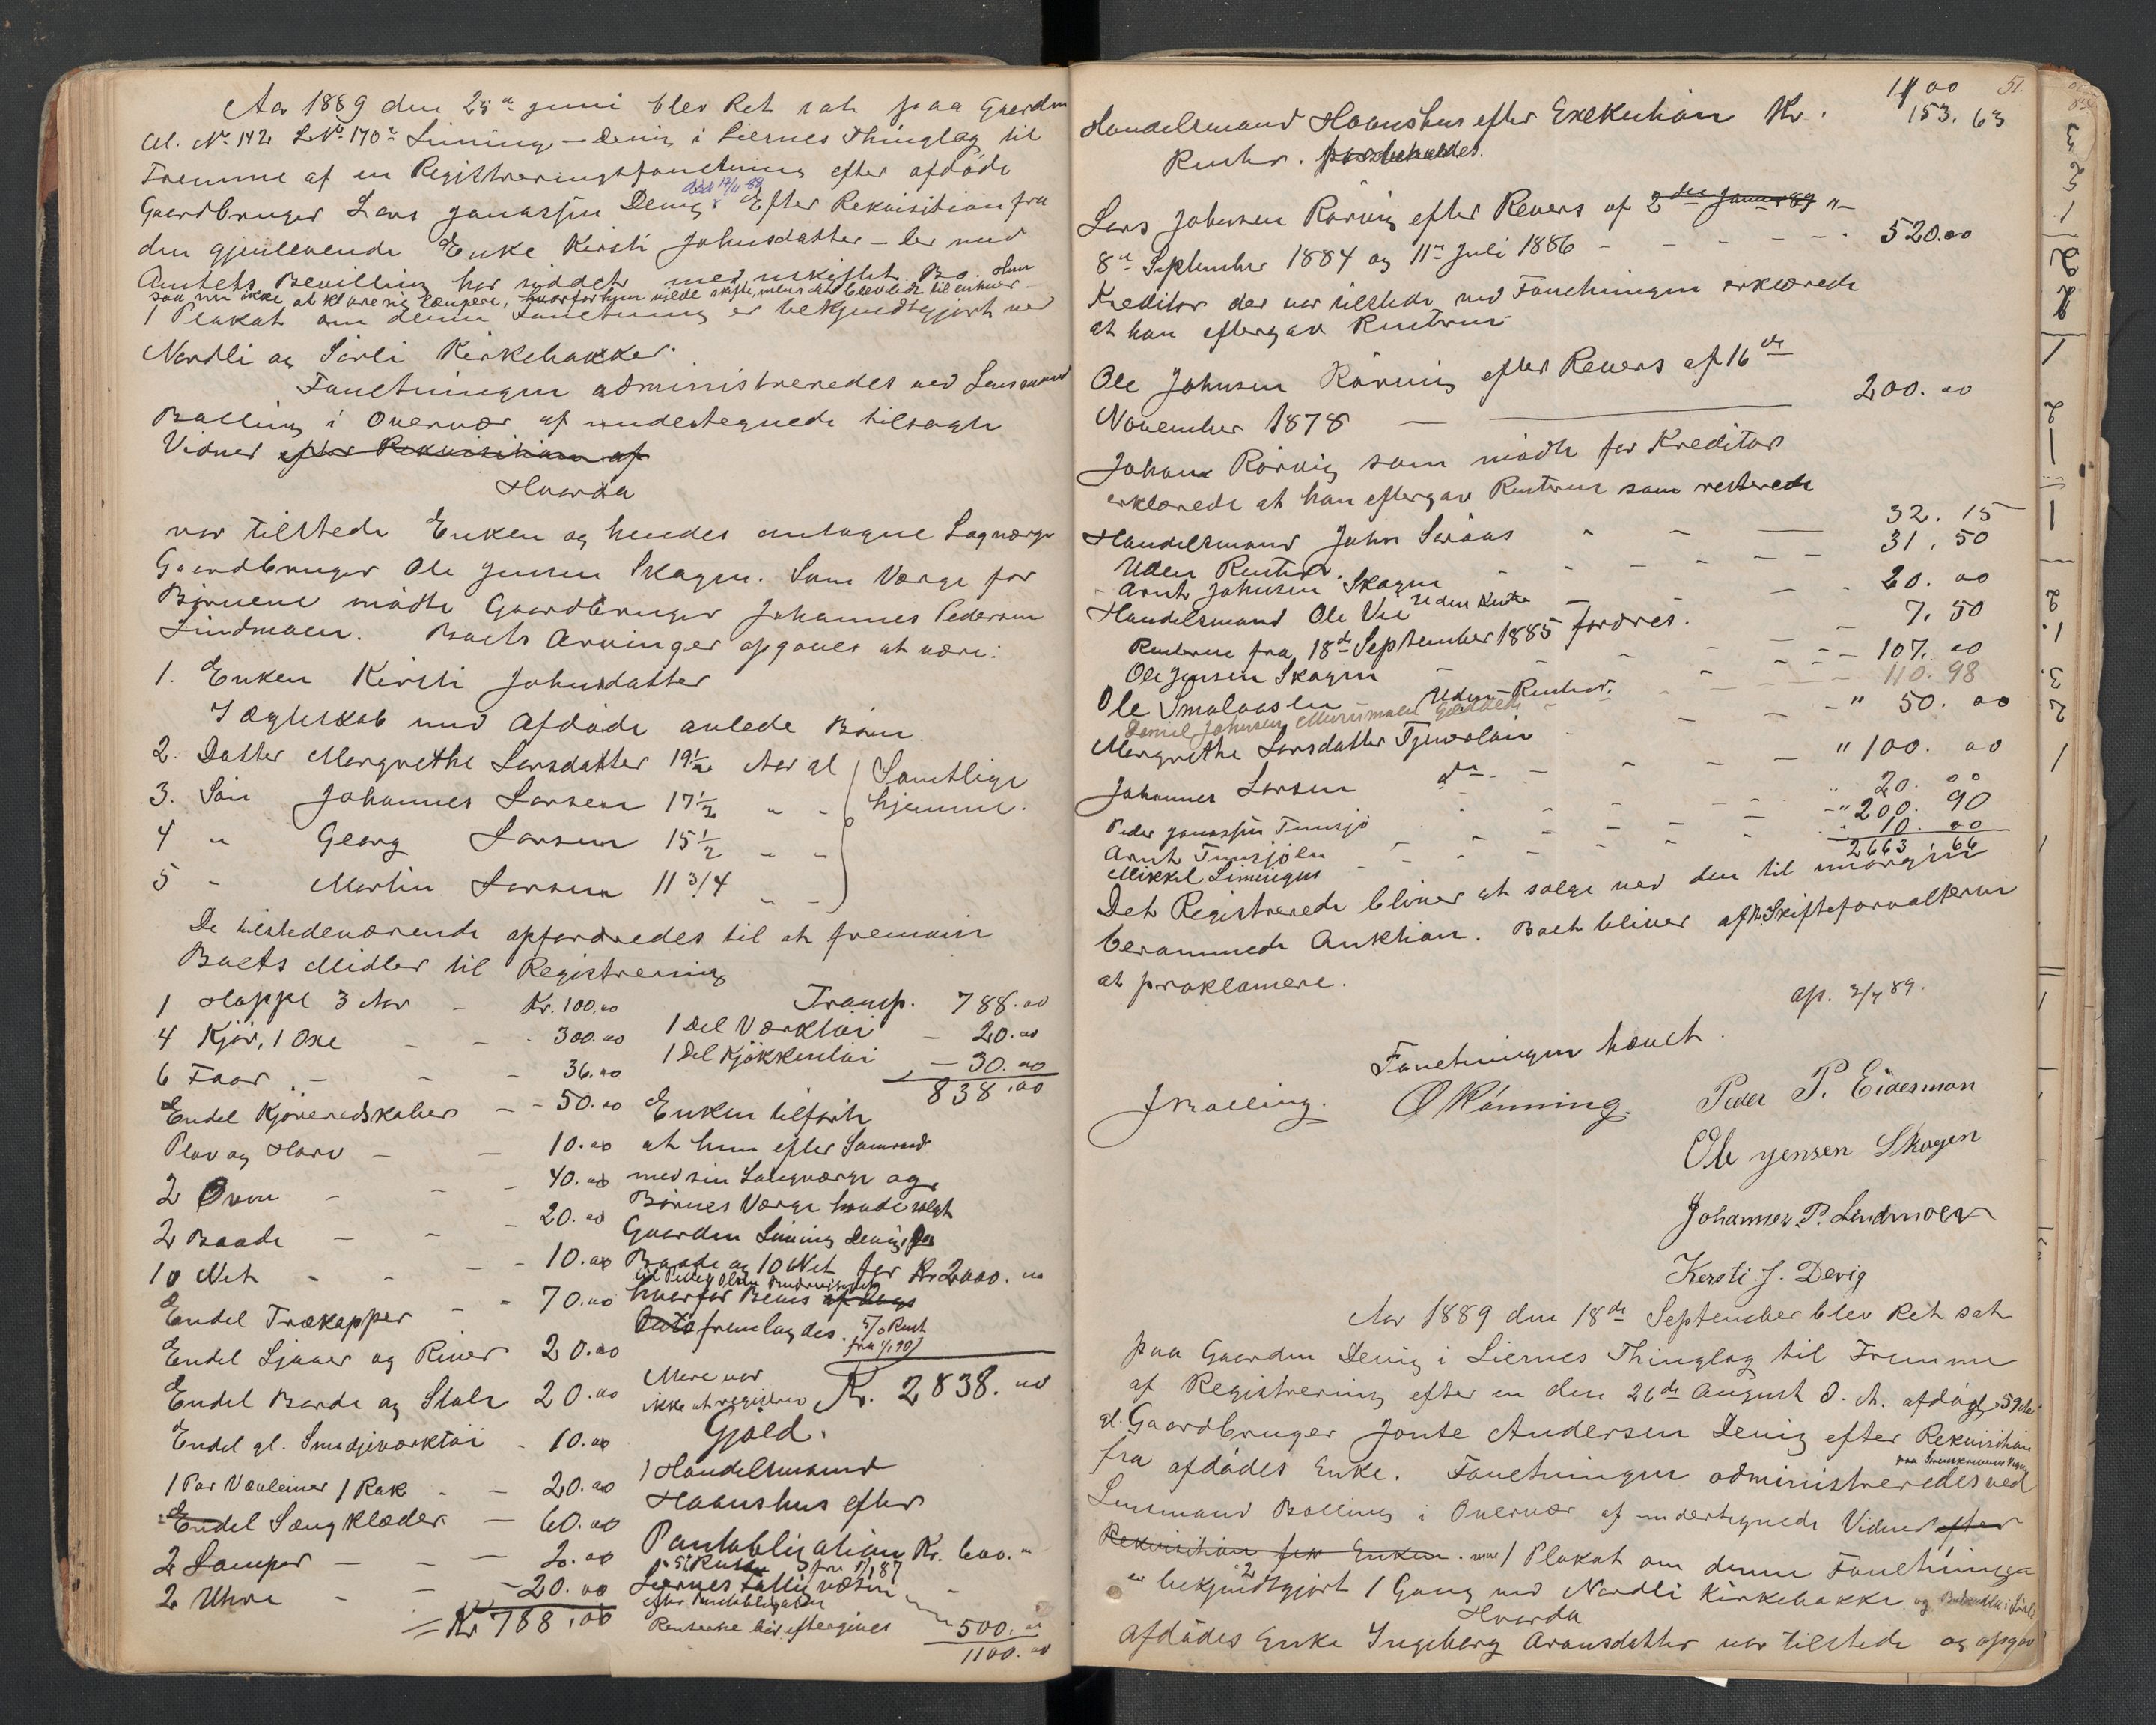 Aar 1889 den 25de juni blev Ret sat paa Gaarden
M. No 142 LNo 170a Liming - Devig i Liernes Thinglag til
Fremme af en Registreringsforretning efter afdöde
Gaardbruger Lars Jonassen Devig. Efter Rekvisition fra
den gjenlevende Enke Kirsti Johnsdatter - der med
Amtets Bevilling har siddet med uskiftet Bo. Hun
saa nu ikke at klare sig længere, hvorfor hun vilde skifte,
1 Plakat om denne Forretning er bekjendtgjort ved
Nordli og Sörli Kirkebakker.
Forretningen administreredes ved Lensmand
Bölling i Overvær af undertegnede tilsagte
Vidner efter Rekvisition af
Hvorda
var tilstede Enken og hendes antagne Lagværge
Gaardbruger Ole Jensen Skogen. Som Værge for
Börnene mödte Gaardbruger Johannes Pedersen
Lindmoen. Boets Arvinger opgaves at være:
1. Enken Kirsti Johnsdatter
I Ægteskab med Afdöde avlede Börn.
2. Datter Margrethe Larsdatter 19½ Aar gl
3. Sön Johannes Larsen 17½ " "
4 " Georg Larsen 15½ " "
5 " Martin Larsen 11 3/4 " "
Samtlige
hjemme.
De tilstedeværende opfordredes til at fremvise
Boets Midler til Registrering
1 Hoppe 3 Aar - Kr. 100.00
4 Kjör, 1 Oxe - - 300.00
6 Faar - - - 36.00
Endel Kjöreredskaber - - 50.00
Plov og Harv - - 10.00
2 Ovne - - - 40.00
2 Baade - - - 20.00
10 Net - - - 10.00
Endel Trækopper - - 70.00
Endel Ljaaer og River 20.00
Endel Borde og Stole 20.00
Endel gl. Smedjeværktöi - 10.00
1 Par Vævleiner 1 Rok - - 20.00
Endel Sengklæder - 60.00
2 Lamper - - - 2.00
2 Uhre - - - 20.00
= Kr 788,00
Transp. 788.00
1 Del Værktöi - 20.00
1 Del Kjökkentöi - 30.00
838.00
Enken tilförte
at hun efter Samraad
med sin Laugværge og
Börnes Værge havde solgt
Gaarden Liming Devig,
Baade og 10 Net for Kr 2000.00
hvorfor Bevis
fremlagdes. 5% Rente
fra 1/1 90)
Mere var
ikke at registrere Kr. 2838.00
Gjæld.
1 Handelsmand
Haanshus efter
Pantobligation Kr. 600.
5% Rente fra 1/1 87
Liernes
efter Pantobligation - 500.00
Renterne blir eftergivet
1100.00
51.
1100
Handelsmand Haanshus efter Exekution Kr. 153.63
Renter. forbeholdes.
Lars Johnsen Rörvig efter Revers af 2den Januar 89
8de September 1884 og 11te Juli 1886 - - - - 520.00
Kreditor der var tilstede ved Forretningen erklærede
at han eftergav Renterne
Ole Johnsen Rörvig efter Revers af 16de
November 1878 - 200.00
Johan Rörvig som mödte for Kreditor
erklærede at han eftergav Renterne som resterede
Handelsmand John - - 32.15
Uden Renter. - - - 31.50
Arnt Johnsen Skogen - - 20.00
Handelsmand Ole Vie Uden Rente - 7.50
Renterne fra 18de September 1885 fordres.
Ole Jensen Skogen - - - 107.00
Ole Smalaasen Uden Renter. - 110.98
Daniel Johnsen - " 50.00
Margrethe Larsdatter - - " 100.00
Johannes Larsen do - - - " 20.00
Peder Jonassen Tunsjö - - - " 200.90
Arnt Tunsjöen - - - " 10.00
Mikkel Limingen - - 2663.66
Det Registrerede bliver at sælge ved den til imorgen
berammede Auktion. Boet bliver af Hr. Skifteforvalteren
at proklamere.
ap. 2/7 89.
Forretningen hævet.
J Bölling. O Rönning. Peder P. Eidesmon
Ole Jensen Skogen
Johannes P. Lindmoen
Kersti J. Devig
Aar 1889 den 18de September blev Ret sat
paa Gaarden Devig i Liernes Thinglag til Fremme
af Registrering efter en den 26de August d. A. afdöd 59 Aar
gl. Gaardbruger Jonte Andersen Devig efter Rekvisition
fra afdödes Enke. Forretningen administreredes ved
Lensmand Bölling i Overvær af undertegnede Vidner efter
Rekvisition fra Enken. 1 Plakat om denne Forretning
er bekjendtgjort 1 Gang ved Nordli Kirkebakke og
Hvorda
afdödes Enke Ingeborg Aronsdatter var tilstede og opgav